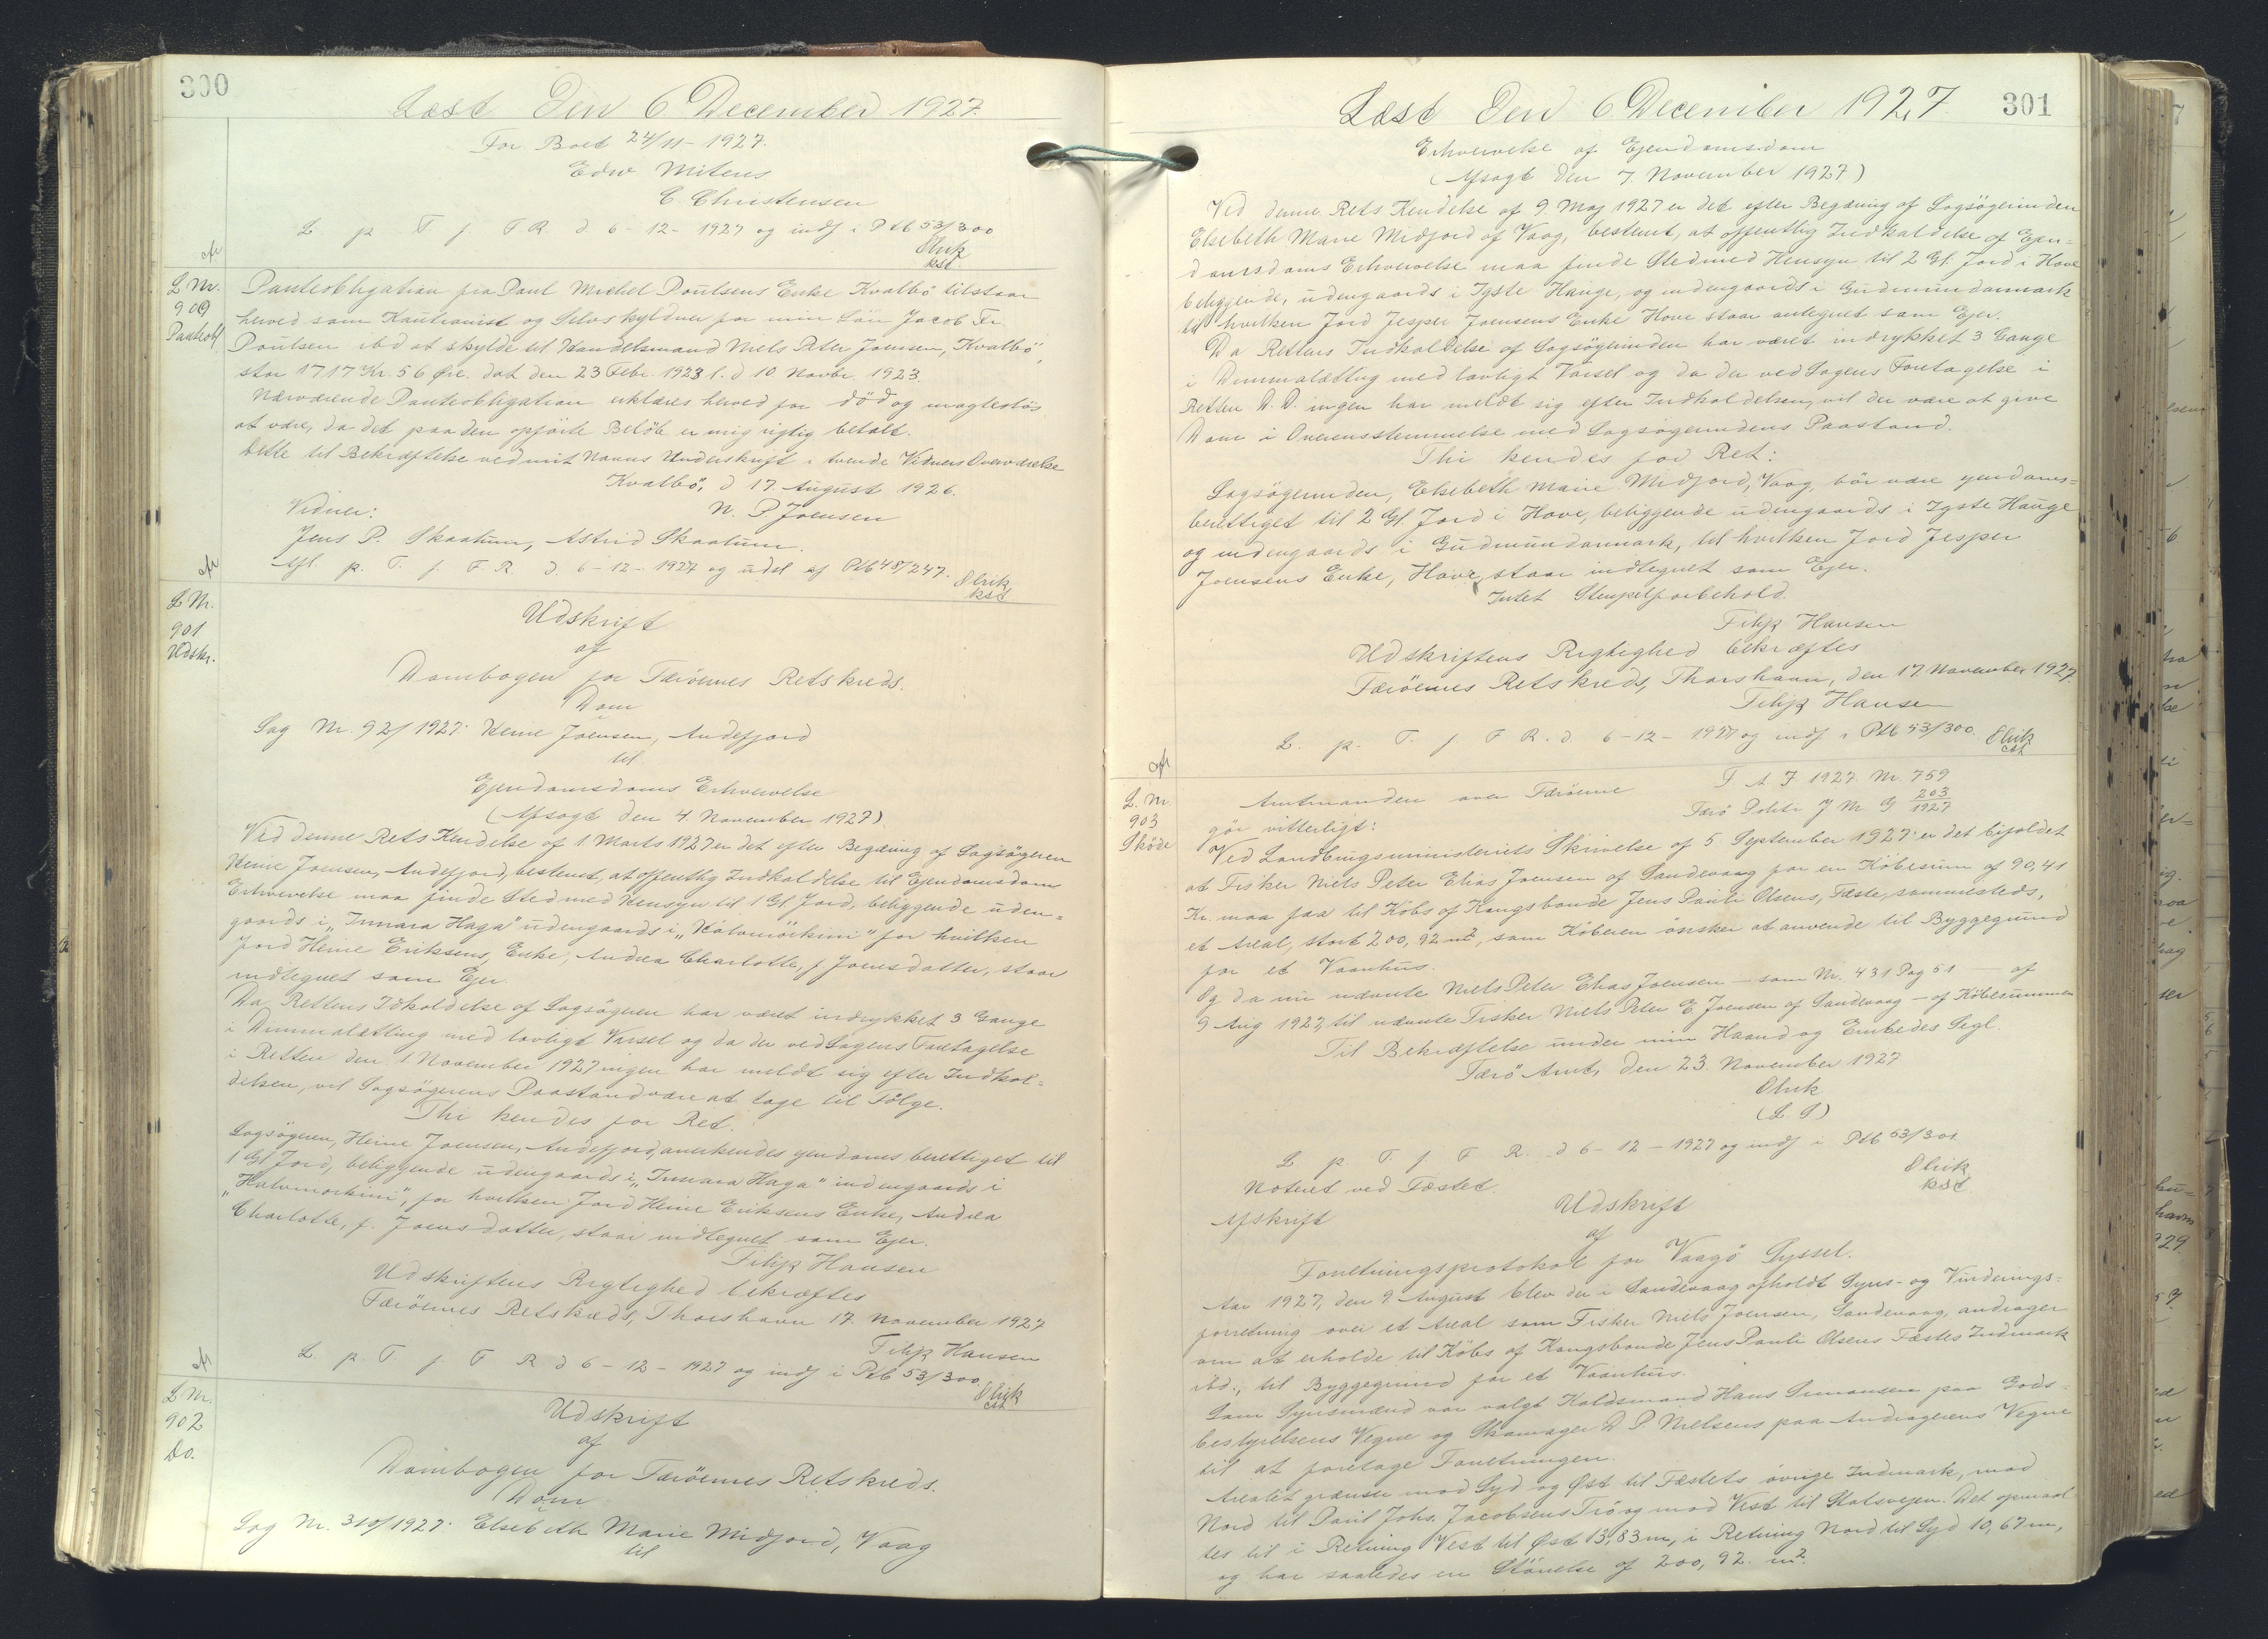 300
Læst Den 6 December 1927.
For Boet 24/11-1927.
Edw Mitens
C. Christensen
L. p. T. f. F. R. d. 6-12-1927 og indf i Ptb 53/300
Olrik
kst.
L Nr.
900
Panteobl
Panteobligation fra Poul Michel Poulsens Enke Kvalbø tilstaar
herved som Kautionist og Selvskyldner for min Søn Jacob Fr
Poulsen ibd at skylde til Handelsmand Niels Peter Joensen, Kvalbø,
stor 1717 Kr. 56 Øre. dat den 23 Febr. 1923 l. d 10 Novbr. 1923.
Nærværende Panteobligation erklæres herved for død og magtesløs
at være, da det paa den opførte Beløb er mig rigtig betalt.
Dette til Bekræftelse ved mit Navns Underskrift i tvende Vidners Overværelse
Kvalbø, d 17. August 1926.
N. P Joensen
Vidner:
Jens P. Skaalum, Astrid Skaalum.
Afl. p. T. f. F. R. d. 6-12-1927 og udsl af Ptb 48/247.
Olrik
kst
L Nr.
901
Udskr.
Udskrift
af
Dombogen for Færøernes Retskreds.
Dom
Sag Nr. 92/1927: Heine Joensen, Andefjord
til
Ejendomsdoms Erhvervelse
(Afsagt den 4 November 1927)
Ved denne Rets Kendelse af 1 Marts 1927 er det efter Begæring af Sagsøgeren
Heine Joensen, Andefjord, bestemt, at offentlig Indkaldelse til Ejendomsdoms
Erhvervelse maa finde Sted med Hensyn til 1 Gl Jord, beliggende uden=
gaards i "Innara Haga" udengaards i "Kálvmörkini" for hvilken
Jord Heine Eriksens, Enke, Andrea Charlotte, f Joensdatter, staar
indtegnet som Ejer.
Da Rettens Idkaldelse af Sagsøgeren har været indrykket 3 Gange
i Dimmalætting med lovligt Varsel og da der ved Sagens Foretagelse
i Retten den 1 November 1927 ingen har meldt sig efter Indkal=
delsen, vil Sagsøgerens Paastand være at tage til Følge.
Thi kendes for Ret.
Sagsøgeren, Heine Joensen, Andefjord, anerkendes ejendomsberettiget til
1 Gl Jord, beliggende udengaards i "Innara Haga" indengaards i
"Halvmørkini", for hvilken Jord Heine Eriksens Enke, Andrea
Charlotte, f. Joensdatter, staar indtegnet som Ejer.
Filip Hansen
Udskriftens Rigtighed bekræftes
Færöernes Retskreds, Thorshavn 17. November 1927
Filip Hansen
L. p. T. f. F R d 6-12-1927 og indf i Ptb 53/300.
Olrik
cst
L Nr.
902
Do.
Udskrift
af
Dombogen for Færöernes Retskreds.
Dom
Sag Nr. 310/1927: Elsebeth Marie Midjord, Vaag
til
301
Læst Den 6 December 1927
Erhvervelse af Ejendomsdom
(Afsagt den 7. November 1927)
Ved denne Rets Kendelse af 9. Maj 1927 er det efter Begæring af Sagsøgerinden
Elsebeth Marie Midjord af Vaag, bestemt, at offentlig Indkaldelse af Ejen=
domsdoms Erhvervelse maa finde Sted med Hensyn til 2 Gl. Jord i Hove
beliggende, udengaards i Ygste Hauge, og indengaards i Gudmundanmark
til hvilken Jord Jesper Joensens Enke Hove staar antegnet som Ejer.
Da Rettens Indkaldelse af Sagsøgerinden har været indrykket 3 Gange
i Dimmalætting med lovligt Varsel og da der ved Sagens Foretagelse i
Retten D. D. ingen har meldt sig efter Indkaldelsen, vil der være at give
Dom i Overensstemmelse med Sagsøgerindens Paastand.
Thi kendes for Ret:
Sagsøgerinden, Elsebeth Marie Midjord, Vaag, bør være ejendoms=
berettiget til 2 Gl. Jord i Hove, beliggende udengaards i Ygste Hauge
og indengaards i Gudmundanmark, til hvilken Jord Jesper
Joensens Enke, Hove, staar indtegnet som Ejer.
Intet Stempelforbehold.
Filip Hansen
Udskriftens Rigtighed bekræftes
Færøernes Retskreds, Thorshavn, den 17. November 1927.
Filip Hansen
L. p. T. f. F R. d. 6-12-1927 og indf i Ptb 53/300.
Olrik
cst
L. Nr.
903
Skøde
F A. J 1927. Nr. 759
Amtmanden over Færøerne
Færø Politi J Nr G 203/1927
gør vitterligt:
Ved Landbrugsministeriets Skrivelse af 5 September 1927 er det bifaldet
at Fisker Niels Peter Elias Joensen af Sandevaag for en Købesum af 90,41
Kr. maa faa til Købs af Kongsbonde Jens Pauli Olsens, Fæste, sammesteds,
et Areal, stort 200,92 m², som Køberen ønsker at anvende til Byggegrund
for et Vaanhus.
Og da nu nævnte Niels Peter Elias Joensen - som Nr. 431 Pag 51 - af
9 Aug 1927, til nævnte Fisker Niels Peter E Joensen af Sandevaag - af Købesummen
Til Bekræftelse under min Haand og Embedes Segl.
Færø Amt, den 23. November 1927
Olrik
(L. S)
L p. T. f F R. d 6-12-1927 og indf i Ptb 53/301.
Olrik
kst.
Noteret ved Fæstet.
Afskrift
Udskrift
af
Forretningsprotokol for Vaagø Syssel.
Aar 1927, den 9. August blev der i Sandevaag afholdt Syns- og Vurderings-
forretning over et Areal som Fisker Niels Joensen, Sandevaag, andrager
om at erholde til Købs af Kongsbonde Jens Pauli Olsens Fæstes Indmark
ibd., til Byggegrund for et Vaanhus.
Som Synsmænd var valgt Holdsmand Hans Simonsen paa Gods-
bestyrelsens Vegne og Skomager D. P. Nielsens paa Andragerens Vegne
til at foretage Forretningen.
Arealet grænser mod Syd og Øst til Fæstets øvrige Indmark, mod
Nord til Paul Johs. Jacobsens Trö og mod Vest til Statsvejen. Det opmaal
tes til i Retning Vest til Øst 13,83 m, i Retning Nord til Syd 10,67 m,
og har saaledes en Størrelse af 200,92 m².